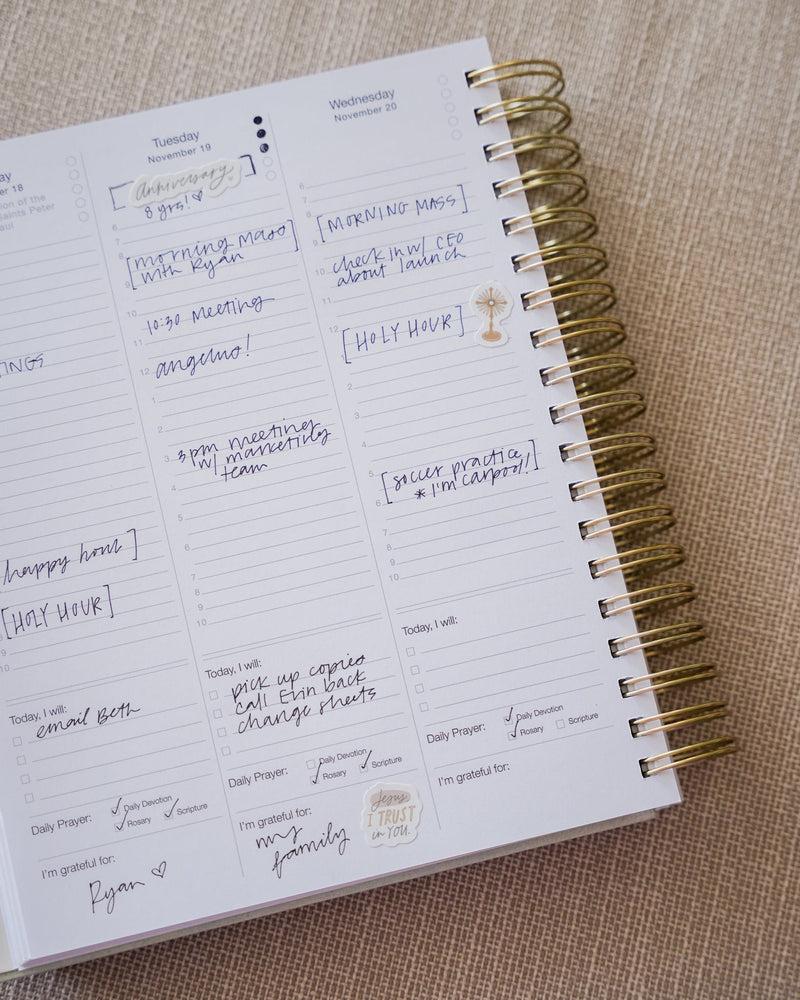 ay
er 18
ion of the
Saints Peter
aul
TINGS
happy hour ]
[HOLY HOUR]
9
10
Today, I will:
email Beth
Daily Prayer:
✓ Daily Devotion
✓ Rosary
✓ Scripture
I'm grateful for:
Ryan ♡
Tuesday
November 19
[ Anniversary ]
8 yrs! ♡
6
7
[morning Mass]
with Ryan
9
10
10:30 Meeting
11
12
angelus!
1
2
3pm meeting
w/ marketing
team
4
5
6
7
8
9
10
Today, I will:
pick up copies
call Erin back
change sheets
Daily Prayer:
Daily Devotion
✓ Rosary
✓ Scripture
I'm grateful for:
my
family
Jesus
I TRUST
in YOU.
Wednesday
November 20
6
7
8
[MORNING MASS]
9
check in w/ CEO
10
about launch
11
12
[HOLY HOUR]
2
3
4
5
[soccer practice
* I'm carpool!]
6
7
8
9
10
Today, I will:
Daily Prayer:
✓ Daily Devotion
✓ Rosary
Scripture
I'm grateful for: